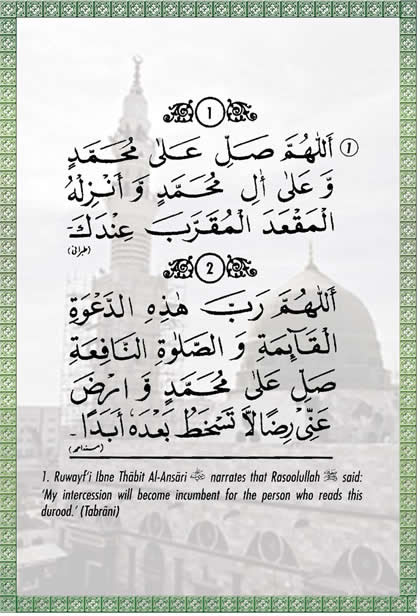 1
اَللّٰهُمَّ صَلِّ عَلٰى مُحَمَّدٍ ①
وَّ عَلٰى اٰلِ مُحَمَّدٍ وَ اَنْزِلْهُ
الْمَقْعَدَ الْمُقَرَّبَ عِنْدَكَ
(طبرانی)
2
اَللّٰهُمَّ رَبَّ هٰذِهِ الدَّعْوَةِ
الْقَآئِمَةِ وَ الصَّلٰوةِ النَّافِعَةِ
صَلِّ عَلٰى مُحَمَّدٍ وَّ ارْضَ
عَنِّىْ رِضًا لاَّ تَسْخَطُ بَعْدَهٗ اَبَدًا۔
(مسند احمد)
1. Ruwayf'i Ibne Thābit Al-Ansāri رضي الله عنه narrates that Rasoolullah ﷺ said:
'My intercession will become incumbent for the person who reads this
durood.' (Tabrāni)